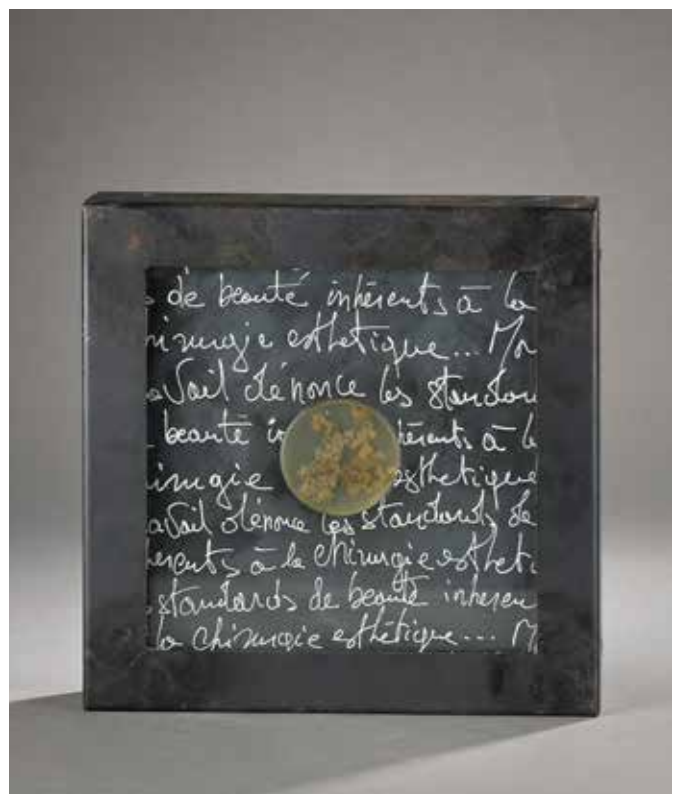 s de beauté inhérents à la
hirurgie esthétique... Mo
avail dénonce les standar
beauté in hérents à l
irurgie esthetique
avail dénonce les standards de
hérents à la chirurgie esthét
standards de beauté inhéren
la chirurgie esthétique... M